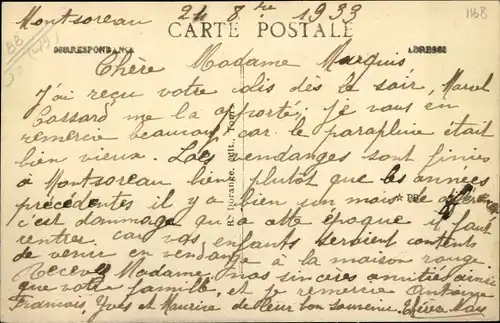 Montsoreau 24 8bre 1933
1168
CARTE POSTALE
CORRESPONDANCE
ADRESSE
Chère Madame Marquis
J'ai reçu votre colis dès le soir, Marcel
Cassard me l'a apporté, je vous en
remercie beaucoup car le parapluie était
bien vieux. Les vendanges sont finies
à Montsoreau bien plutôt que les années
précédentes il y a bien un mois de différence
c'est dommage qu'a cette époque il faut
rentrer car vos enfants seraient contents
de venir en vendange à la maison rouge
Recevez Madame, nos sincères amitiés ainsi
que votre famille, et je remercie Antoine
François, Yves et Maurice de leur bon souvenir.